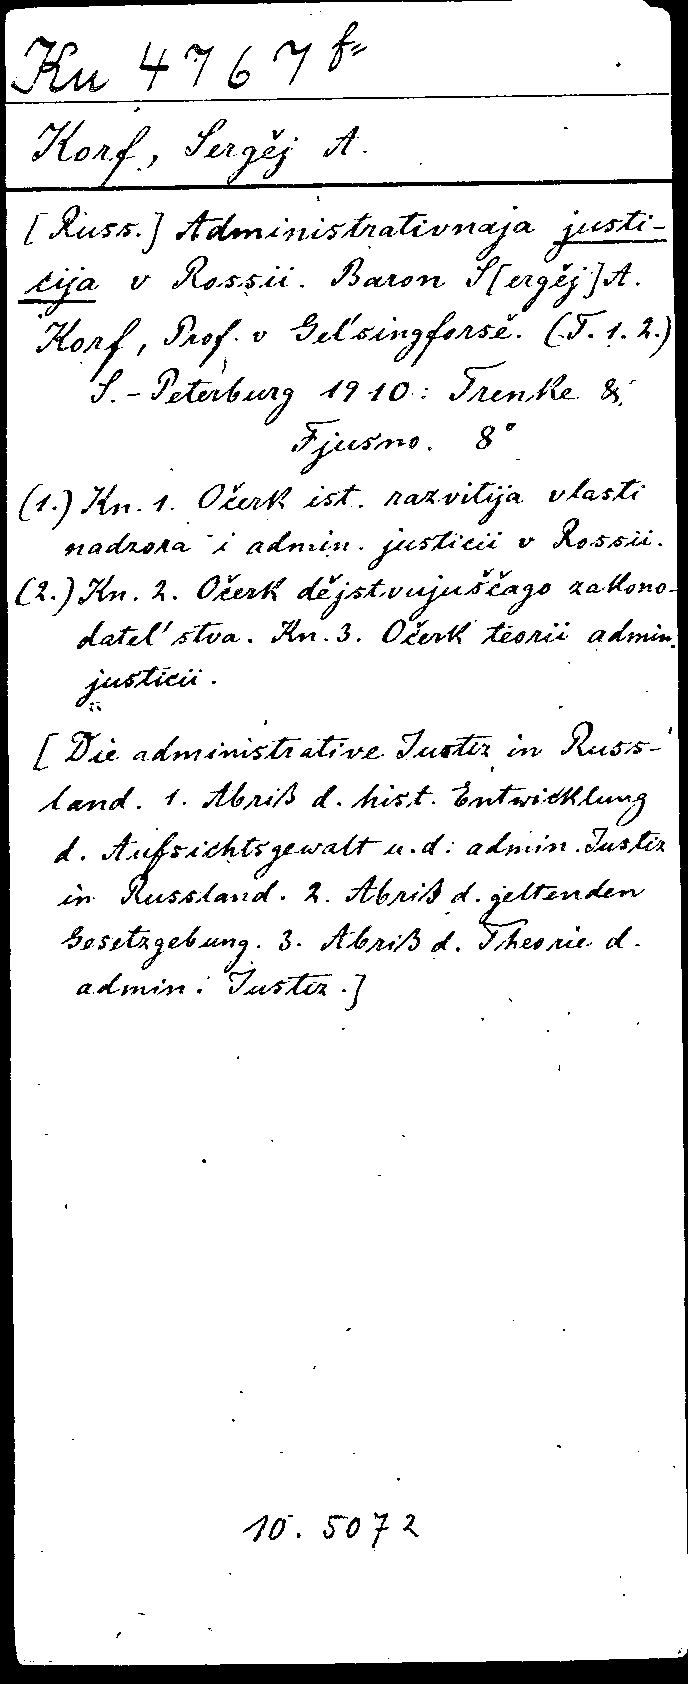 Ku 4767 f=
Korf, Sergěj A.
[Russ.] Administrativnaja justi-
cija v Rossii. Baron S[ergěj] A.
Korf, Prof. v Gel'singforsě. (T. 1. 2.)
S.-Peterburg 1910: Trenke &
Fjusno. 8°
(1.) Kn. 1. Očerk ist. razvitija vlasti
nadzora i admin. justicii v Rossii.
(2.) Kn. 2. Očerk dějstvujuščago zakono-
datel'stva. Kn. 3. Očerk teorii admin.
justicii.
[Die administrative Justiz in Russ-
land. 1. Abriß d. hist. Entwicklung
d. Aufsichtsgewalt u. d. admin. Justiz
in Russland. 2. Abriß d. geltenden
Gesetzgebung. 3. Abriß d. Theorie d.
admin. Justiz.]
10. 5072